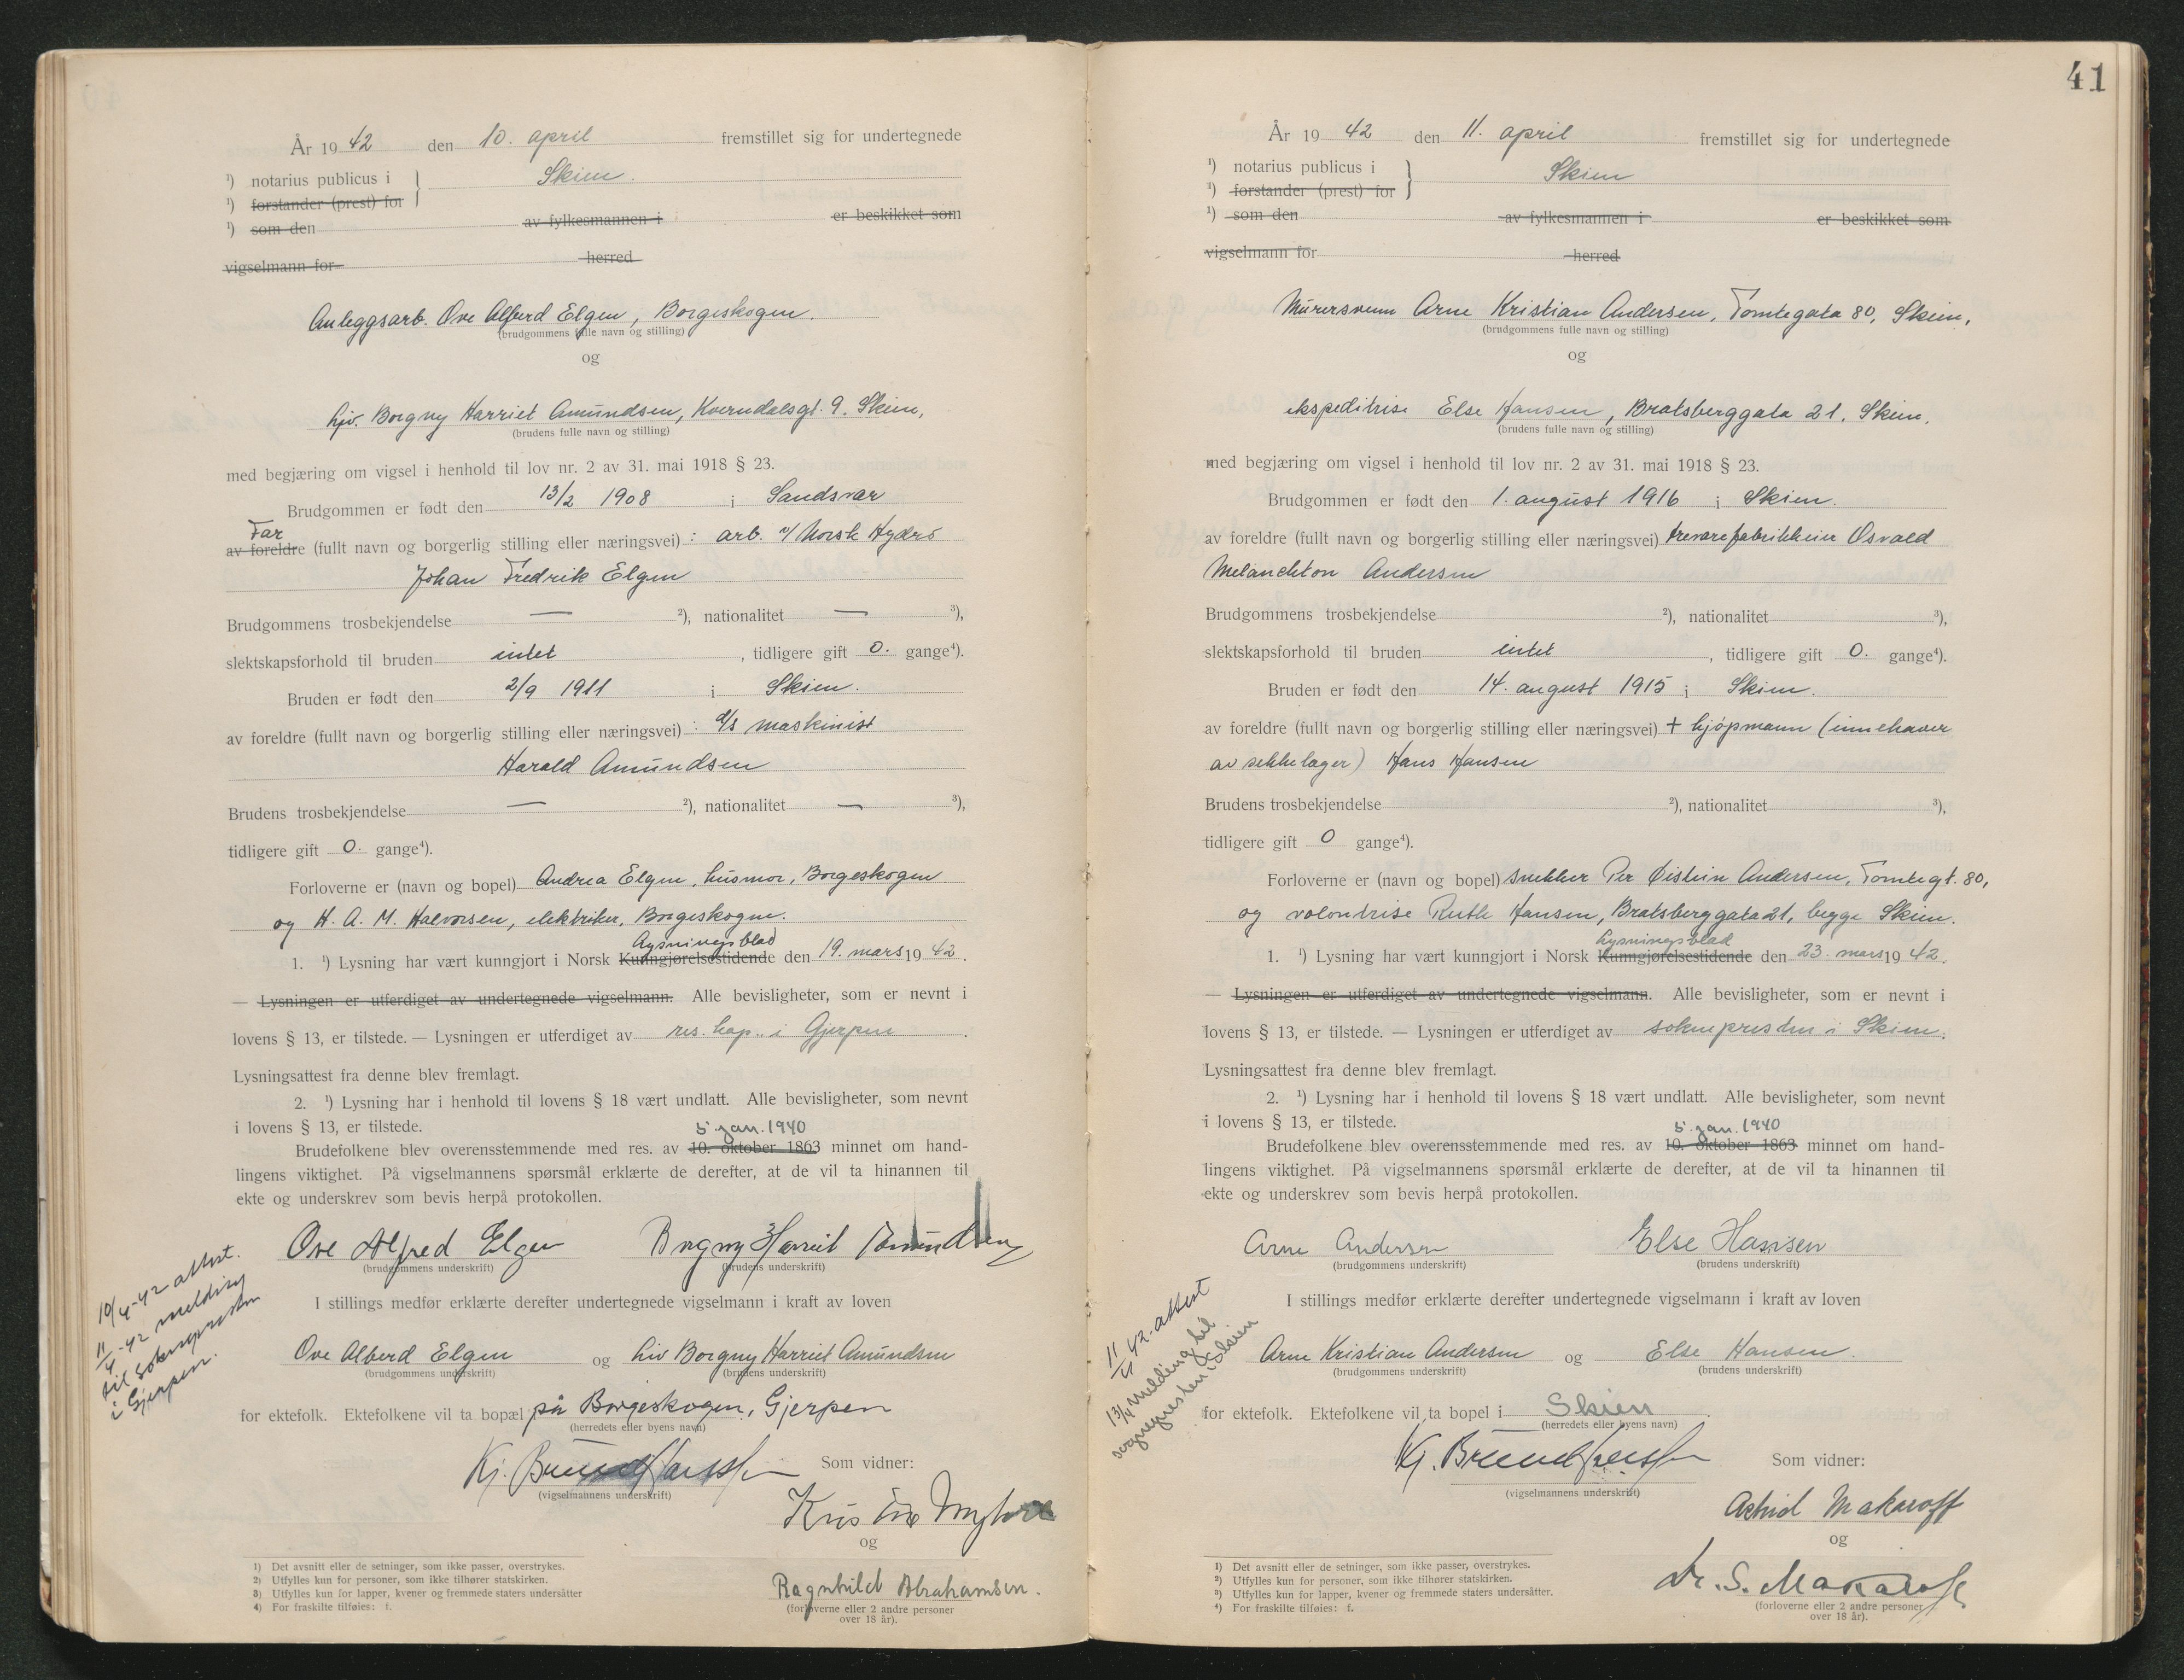 År 1942 den 10. april fremstillet sig for undertegnede
¹) notarius publicus i Skien.
¹) forstander (prest) for
¹) som den av fylkesmannen i er beskikket som
vigselmann for herred
Anleggsarb. Ove Alferd Elgen, Borgeskogen.
(brudgommens fulle navn og stilling)
og
Liv. Borgny Harriet Amundsen, Kverndalsgt. 9. Skien,
(brudens fulle navn og stilling)
med begjæring om vigsel i henhold til lov nr. 2 av 31. mai 1918 § 23.
Brudgommen er født den 13/2 1908 i Sandsvær
Far
av foreldre (fullt navn og borgerlig stilling eller næringsvei) : arb. v/ Norsk Hydro
Johan Fredrik Elgen
Brudgommens trosbekjendelse — ²), nationalitet — ³),
slektskapsforhold til bruden intet , tidligere gift 0. gange⁴).
Bruden er født den 2/9 1911 i Skien.
av foreldre (fullt navn og borgerlig stilling eller næringsvei) : d/s maskinist
Harald Amundsen
Brudens trosbekjendelse — ²), nationalitet — ³),
tidligere gift 0. gange⁴).
Forloverne er (navn og bopel) Andrea Elgen, husmor, Borgeskogen
og H. A. M. Halvorsen, elektriker, Borgeskogen.
Lysningsblad
1. ¹) Lysning har vært kunngjort i Norsk Kunngjørelsestidende den 19. mars 1942.
— Lysningen er utferdiget av undertegnede vigselmann. Alle bevisligheter, som er nevnt i
lovens § 13, er tilstede. — Lysningen er utferdiget av res. kap. i Gjerpen.
Lysningsattest fra denne blev fremlagt.
2. ¹) Lysning har i henhold til lovens § 18 vært undlatt. Alle bevisligheter, som nevnt
i lovens § 13, er tilstede.
5. jan. 1940
Brudefolkene blev overensstemmende med res. av 10. oktober 1863 minnet om hand-
lingens viktighet. På vigselmannens spørsmål erklærte de derefter, at de vil ta hinannen til
ekte og underskrev som bevis herpå protokollen.
Ove Alfred Elgen Borgny Harriet Amundsen
(brudgommens underskrift) (brudens underskrift)
I stillings medfør erklærte derefter undertegnede vigselmann i kraft av loven
Ove Alberd Elgen og Liv Borgny Harriet Amundsen
(brudgommens underskrift) (brudens underskrift)
for ektefolk. Ektefolkene vil ta bopæl på Borgeskogen, Gjerpen
(herredets eller byens navn)
10/4-42 attest.
11/4-42 melding
til soknepresten
i Gjerpen.
Kj.
(vigselmannens underskrift)
Som vidner:
og
Ragnhild Abrahamsen.
(forloverne eller 2 andre personer
over 18 år).
1) Det avsnitt eller de setninger, som ikke passer, overstrykes.
2) Utfylles kun for personer, som ikke tilhører statskirken.
3) Utfylles kun for lapper, kvener og fremmede staters undersåtter
4) For fraskilte tilføies: f.
41
År 1942 den 11. april fremstillet sig for undertegnede
¹) notarius publicus i Skien
¹) forstander (prest) for
¹) som den av fylkesmannen i er beskikket som
vigselmann for herred
Murersvenn Arne Kristian Andersen, Tomtegata 80, Skien,
(brudgommens fulle navn og stilling)
og
ekspeditrise Else Hansen, Bratsberggata 21, Skien,
(brudens fulle navn og stilling)
med begjæring om vigsel i henhold til lov nr. 2 av 31. mai 1918 § 23.
Brudgommen er født den 1. august 1916 i Skien.
av foreldre (fullt navn og borgerlig stilling eller næringsvei) trevarefabrikkeier Osvald
Melanchton Andersen
Brudgommens trosbekjendelse ²), nationalitet ³),
slektskapsforhold til bruden intet , tidligere gift 0. gange⁴).
Bruden er født den 14. august 1915 i Skien.
av foreldre (fullt navn og borgerlig stilling eller næringsvei) + kjøpmann (innehaver
av sekkelager) Hans Hansen
Brudens trosbekjendelse ²), nationalitet ³),
tidligere gift 0 gange⁴).
Forloverne er (navn og bopel) snekker Per Øistein Andersen, Tomtegt. 80,
og volontrise Ruth Hansen, Bratsberggata 21, begge Skien.
Lysningsblad
1. ¹) Lysning har vært kunngjort i Norsk Kunngjørelsestidende den 23. mars 1942.
— Lysningen er utferdiget av undertegnede vigselmann. Alle bevisligheter, som er nevnt i
lovens § 13, er tilstede. — Lysningen er utferdiget av soknepresten i Skien.
Lysningsattest fra denne blev fremlagt.
2. ¹) Lysning har i henhold til lovens § 18 vært undlatt. Alle bevisligheter, som nevnt
i lovens § 13, er tilstede.
5. jan. 1940
Brudefolkene blev overensstemmende med res. av 10. oktober 1863 minnet om hand-
lingens viktighet. På vigselmannens spørsmål erklærte de derefter, at de vil ta hinannen til
ekte og underskrev som bevis herpå protokollen.
Arne Andersen Else Hansen
(brudgommens underskrift) (brudens underskrift)
I stillings medfør erklærte derefter undertegnede vigselmann i kraft av loven
Arne Kristian Andersen og Else Hansen.
(brudgommens underskrift) (brudens underskrift)
for ektefolk. Ektefolkene vil ta bopel i Skien.
(herredets eller byens navn)
11/4 42. attest
13/4 melding til
sognepresten i Skien
Kj.
(vigselmannens underskrift)
Som vidner:
Astrid Makaroff
og
Dr. S. Makaroff
(forloverne eller 2 andre personer
over 18 år).
¹) Det avsnitt eller de setninger, som ikke passer, overstrykes.
²) Utfylles kun for personer, som ikke tilhører statskirken.
³) Utfylles kun for lapper, kvener og fremmede staters undersåtter.
⁴) For fraskilte tilføies: f.